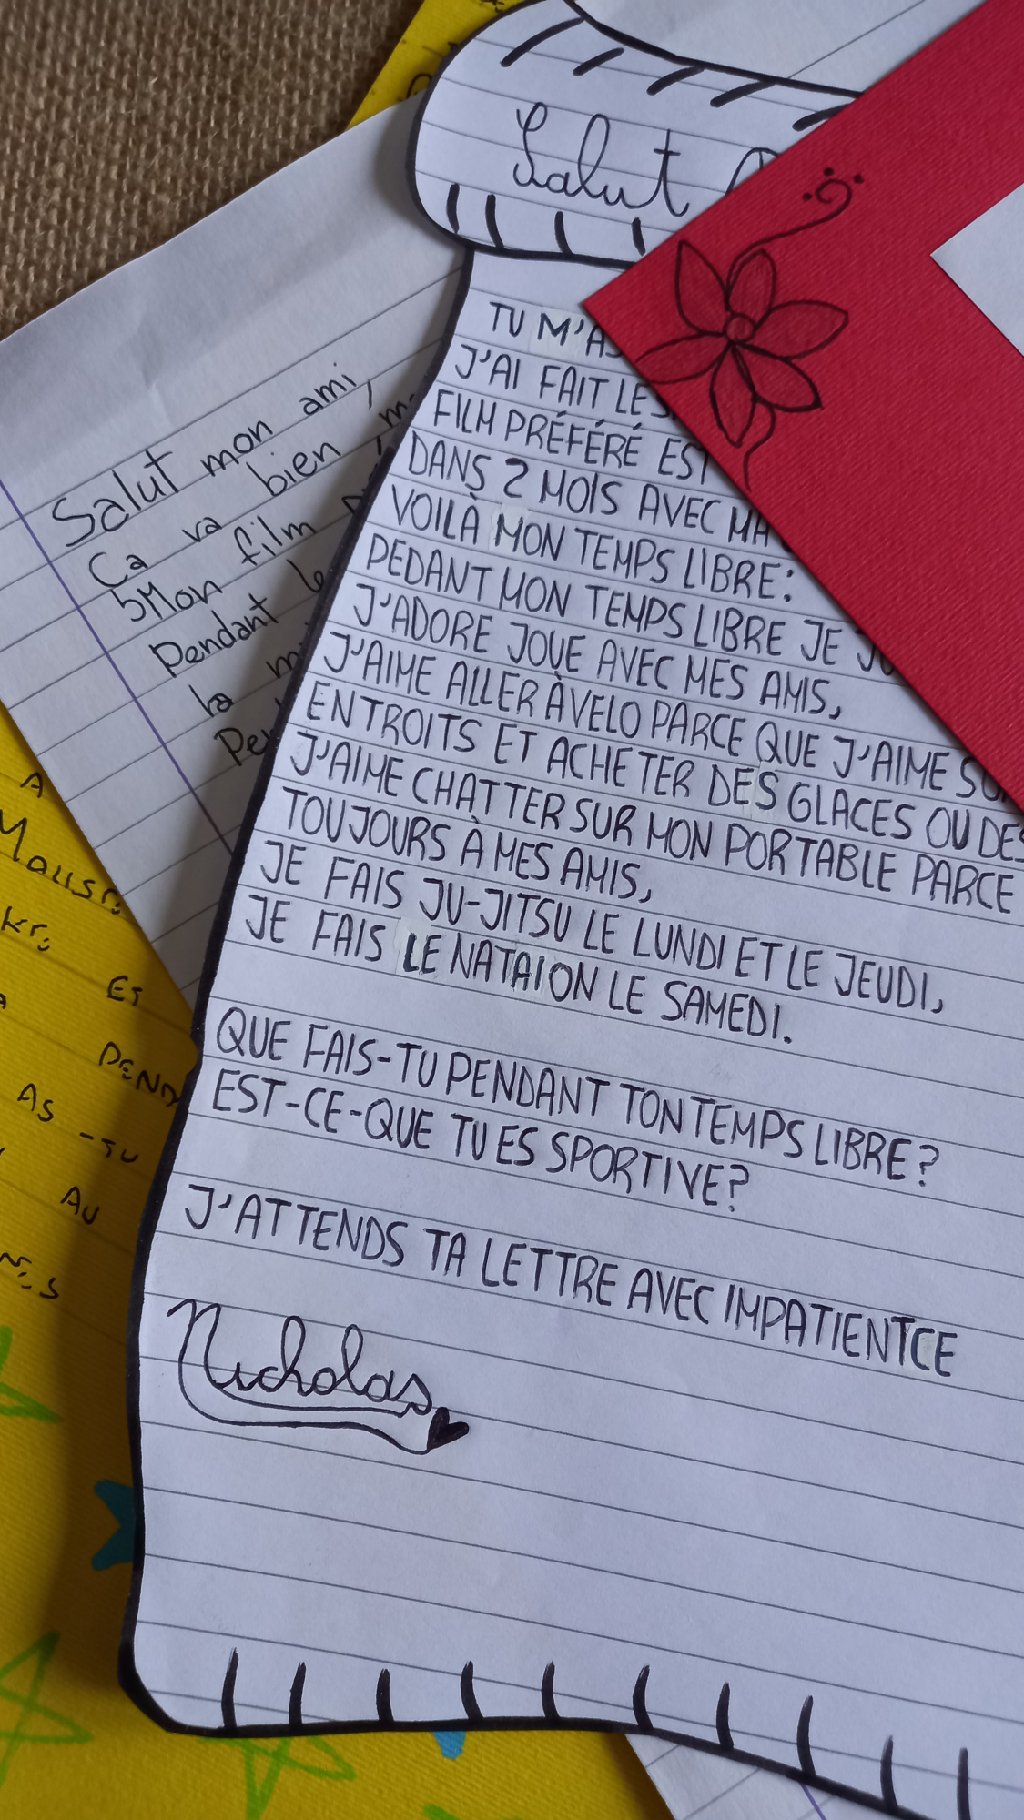 Salut
TU M'A
J'AI FAIT LES
FILM PRÉFÉRÉ EST
DANS 2 MOIS AVEC MA
VOILÀ MON TEMPS LIBRE:
PEDANT MON TEMPS LIBRE JE JO
J'ADORE JOUE AVEC MES AMIS,
J'AIME ALLER À VELO PARCE QUE J'AIME
ENTROITS ET ACHETER DES GLACES OU DES
J'AIME CHATTER SUR MON PORTABLE PARCE
TOUJOURS À MES AMIS,
JE FAIS JU-JITSU LE LUNDI ET LE JEUDI,
JE FAIS LE NATAION LE SAMEDI.
QUE FAIS-TU PENDANT TON TEMPS LIBRE?
EST-CE-QUE TU ES SPORTIVE?
J'ATTENDS TA LETTRE AVEC IMPATIENTCE
Nicholas
Salut mon ami,
Ça va bien
Mon film
Pendant le
la
Pen
A
ET
PEND
AS-TU
AU